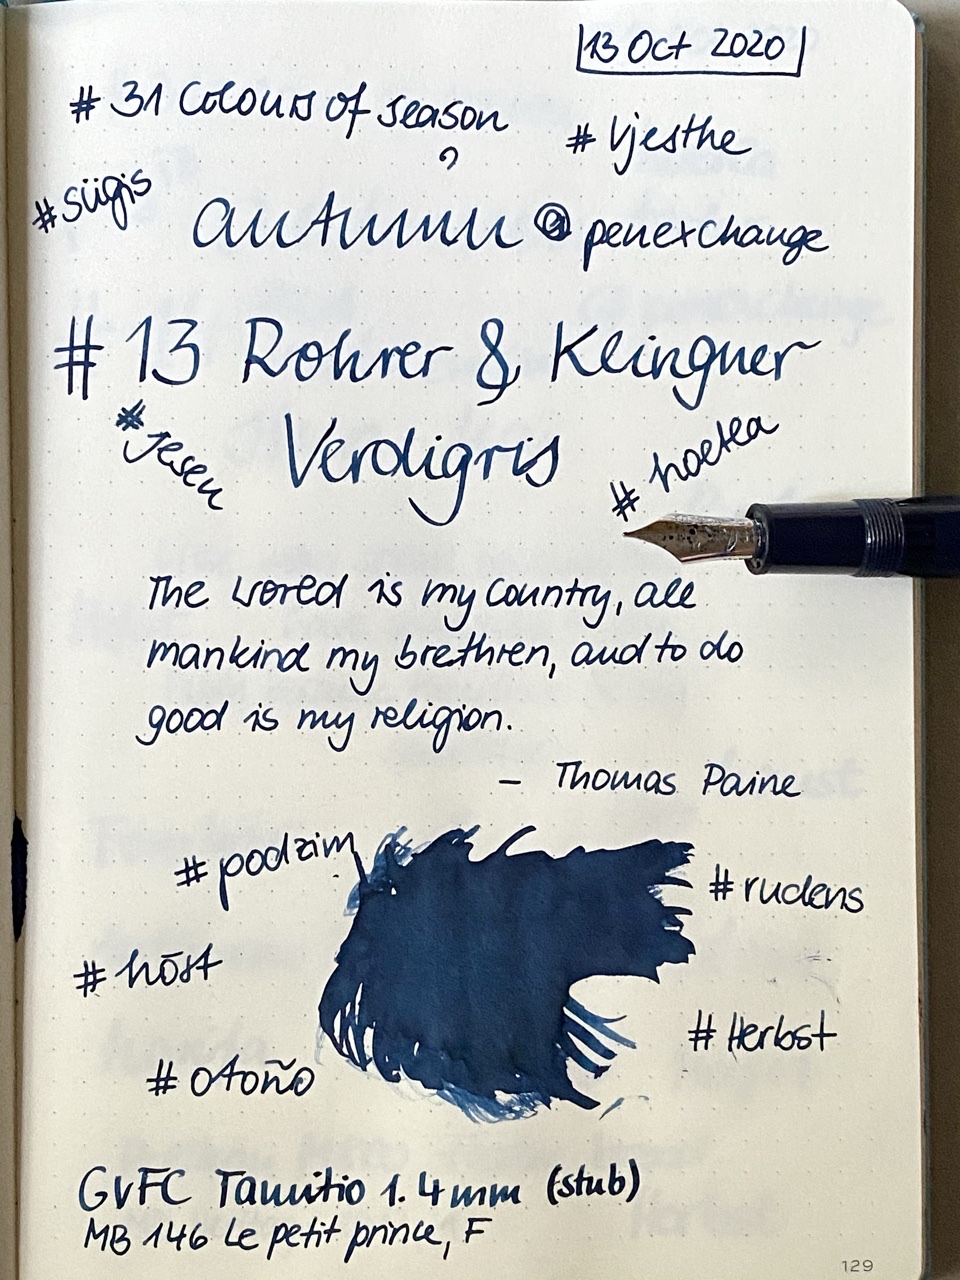 13 Oct 2020
# 31 Colours of season
# Vjesthe
# sügis
autumn @ penexchange
# 13 Rohrer & Klingner
# Jesen
Verdigris
# hoelea
The world is my country, all
mankind my brethren, and to do
good is my religion.
– Thomas Paine
# podzim
# rudens
# höst
# Herbst
# otoño
GvFC Tamitio 1.4mm (stub)
MB 146 Le petit prince, F
129